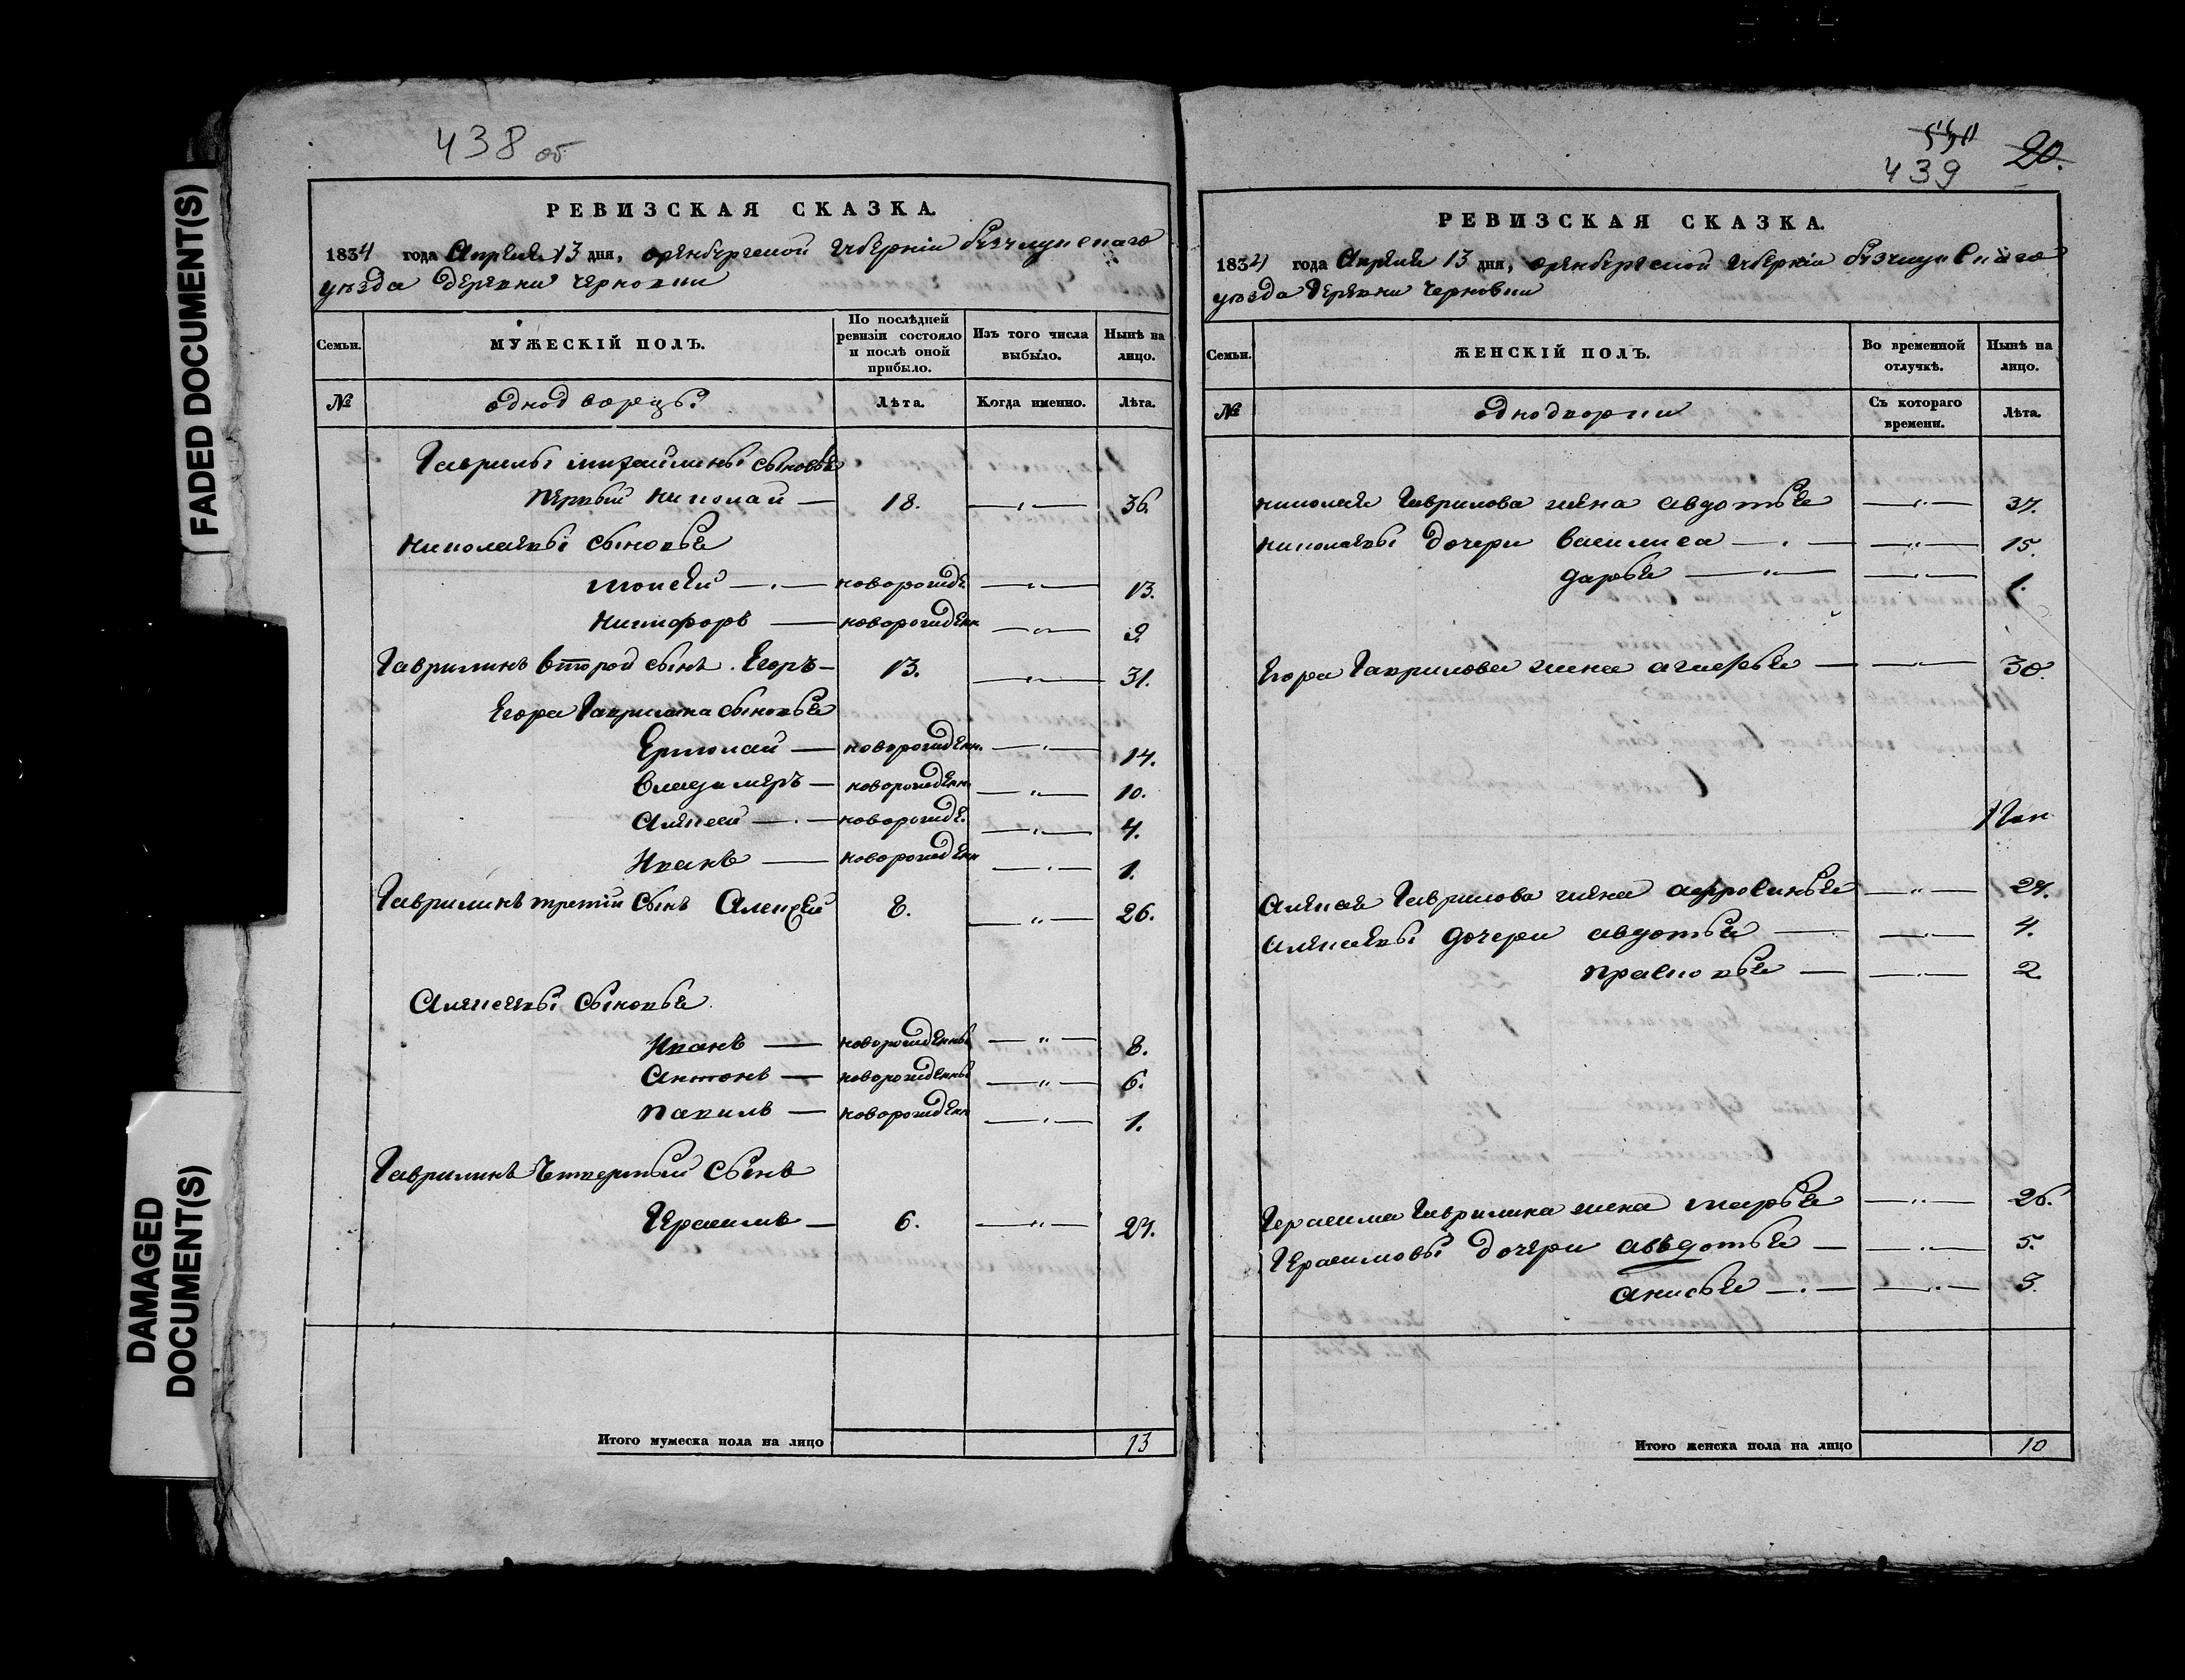 FADED DOCUMENT(S)
DAMAGED
DOCUMENT(S)
438 об
РЕВИЗСКАЯ СКАЗКА.
1834 года Апреля 13 дня, оренбургской губернiи бузулукскаго
уезда деревни черновки
Семьи.
МУЖЕСКІЙ ПОЛЪ.
По послѣдней
ревизіи состояло
и послѣ оной
прибыло.
Изъ того числа
выбыло.
Нынѣ на
лицо.
№ однодворцы Лѣта. Когда именно. Лѣта.
Гаврилы михайлины сыновья
первый николай — 18. — „ — 36.
николаевы сыновья
мокей — новорожде — „ — 13.
никифоръ — новорожденн — „ — 9.
Гаврилинъ второй сынъ. Егоръ — 13. — „ — 31.
Егора Гаврилина сыновья
Ермолай — новорожденн. — „ — 14.
владимеръ — новорожденн — „ — 10.
Алексей — новорожде. — „ — 4.
Иванъ — новорожденн — „ — 1.
Гаврилинъ третiй сынъ Алексей 8. — „ — 26.
Алексеевы сыновья
Иванъ — новорожденны — „ — 8.
Антонъ — новорожденны — „ — 6.
павилъ — новорожденн — „ — 1.
Гаврилинъ Четвертый сынъ
Герасимъ — 6. — „ — 24.
Итого мужеска пола на лицо 13
439 20.
РЕВИЗСКАЯ СКАЗКА.
1834 года Апреля 13 дня, оренбургской губернiи бузулукскаго
уезда деревни черновки
Семьи.
ЖЕНСКІЙ ПОЛЪ.
Во временной
отлучкѣ.
Нынѣ на
лицо.
№ однодворки Съ котораго
времени. Лѣта.
николая Гаврилова жена авдотья — „ — 37.
николаевы дочери василиса — „ — 15.
дарья — „ — 1.
Егора Гаврилова жена агафья — „ — 30.
Алексея Гаврилова жена афросинья — „ — 27.
Алексеевы дочери авдотья — „ — 4.
прасковья — „ — 2.
Герасима Гаврилина жена марья — „ — 26.
Герасимовы дочери авъдотья — „ — 5.
анисья — „ — 3.
Итого женска пола на лицо 10